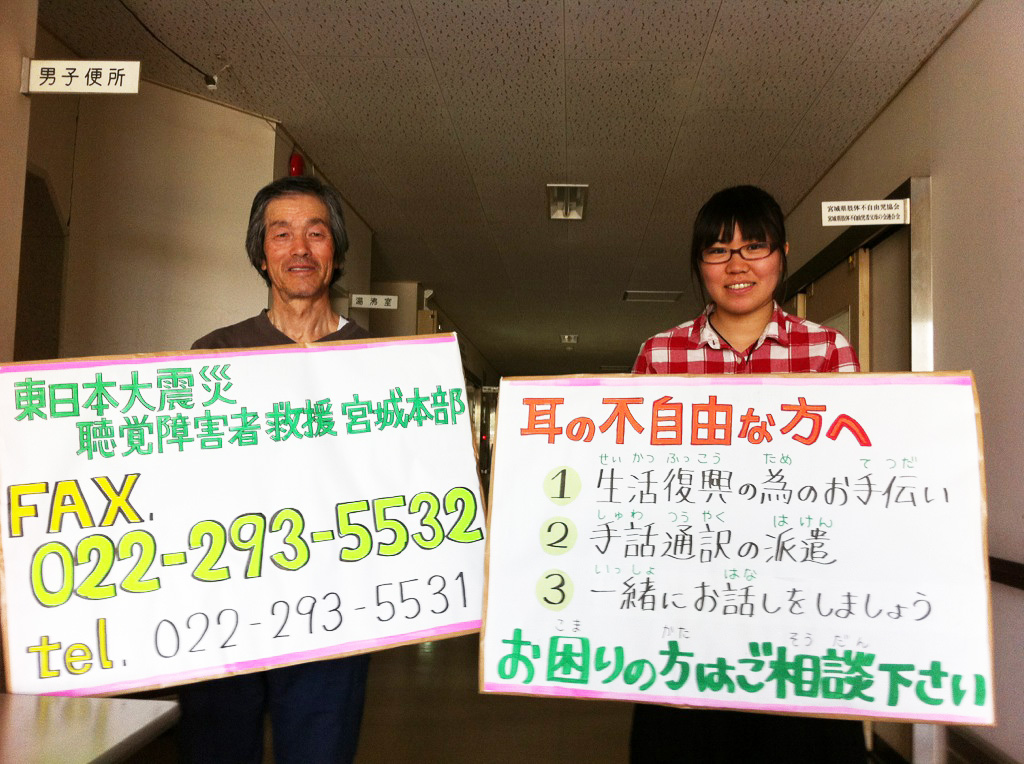 男子便所
湯沸室
宮城県肢体不自由児協会
東日本大震災
聴覚障害者救援宮城本部
FAX.
022-293-5532
tel. 022-293-5531
耳の不自由な方へ
せい かつ ふっ こう ため て つだ
1 生活復興の為のお手伝い
しゅ わ つう やく は けん
2 手話通訳の派遣
いっ しょ はな
3 一緒にお話しをしましょう
こま がた そう だん
お困りの方はご相談下さい